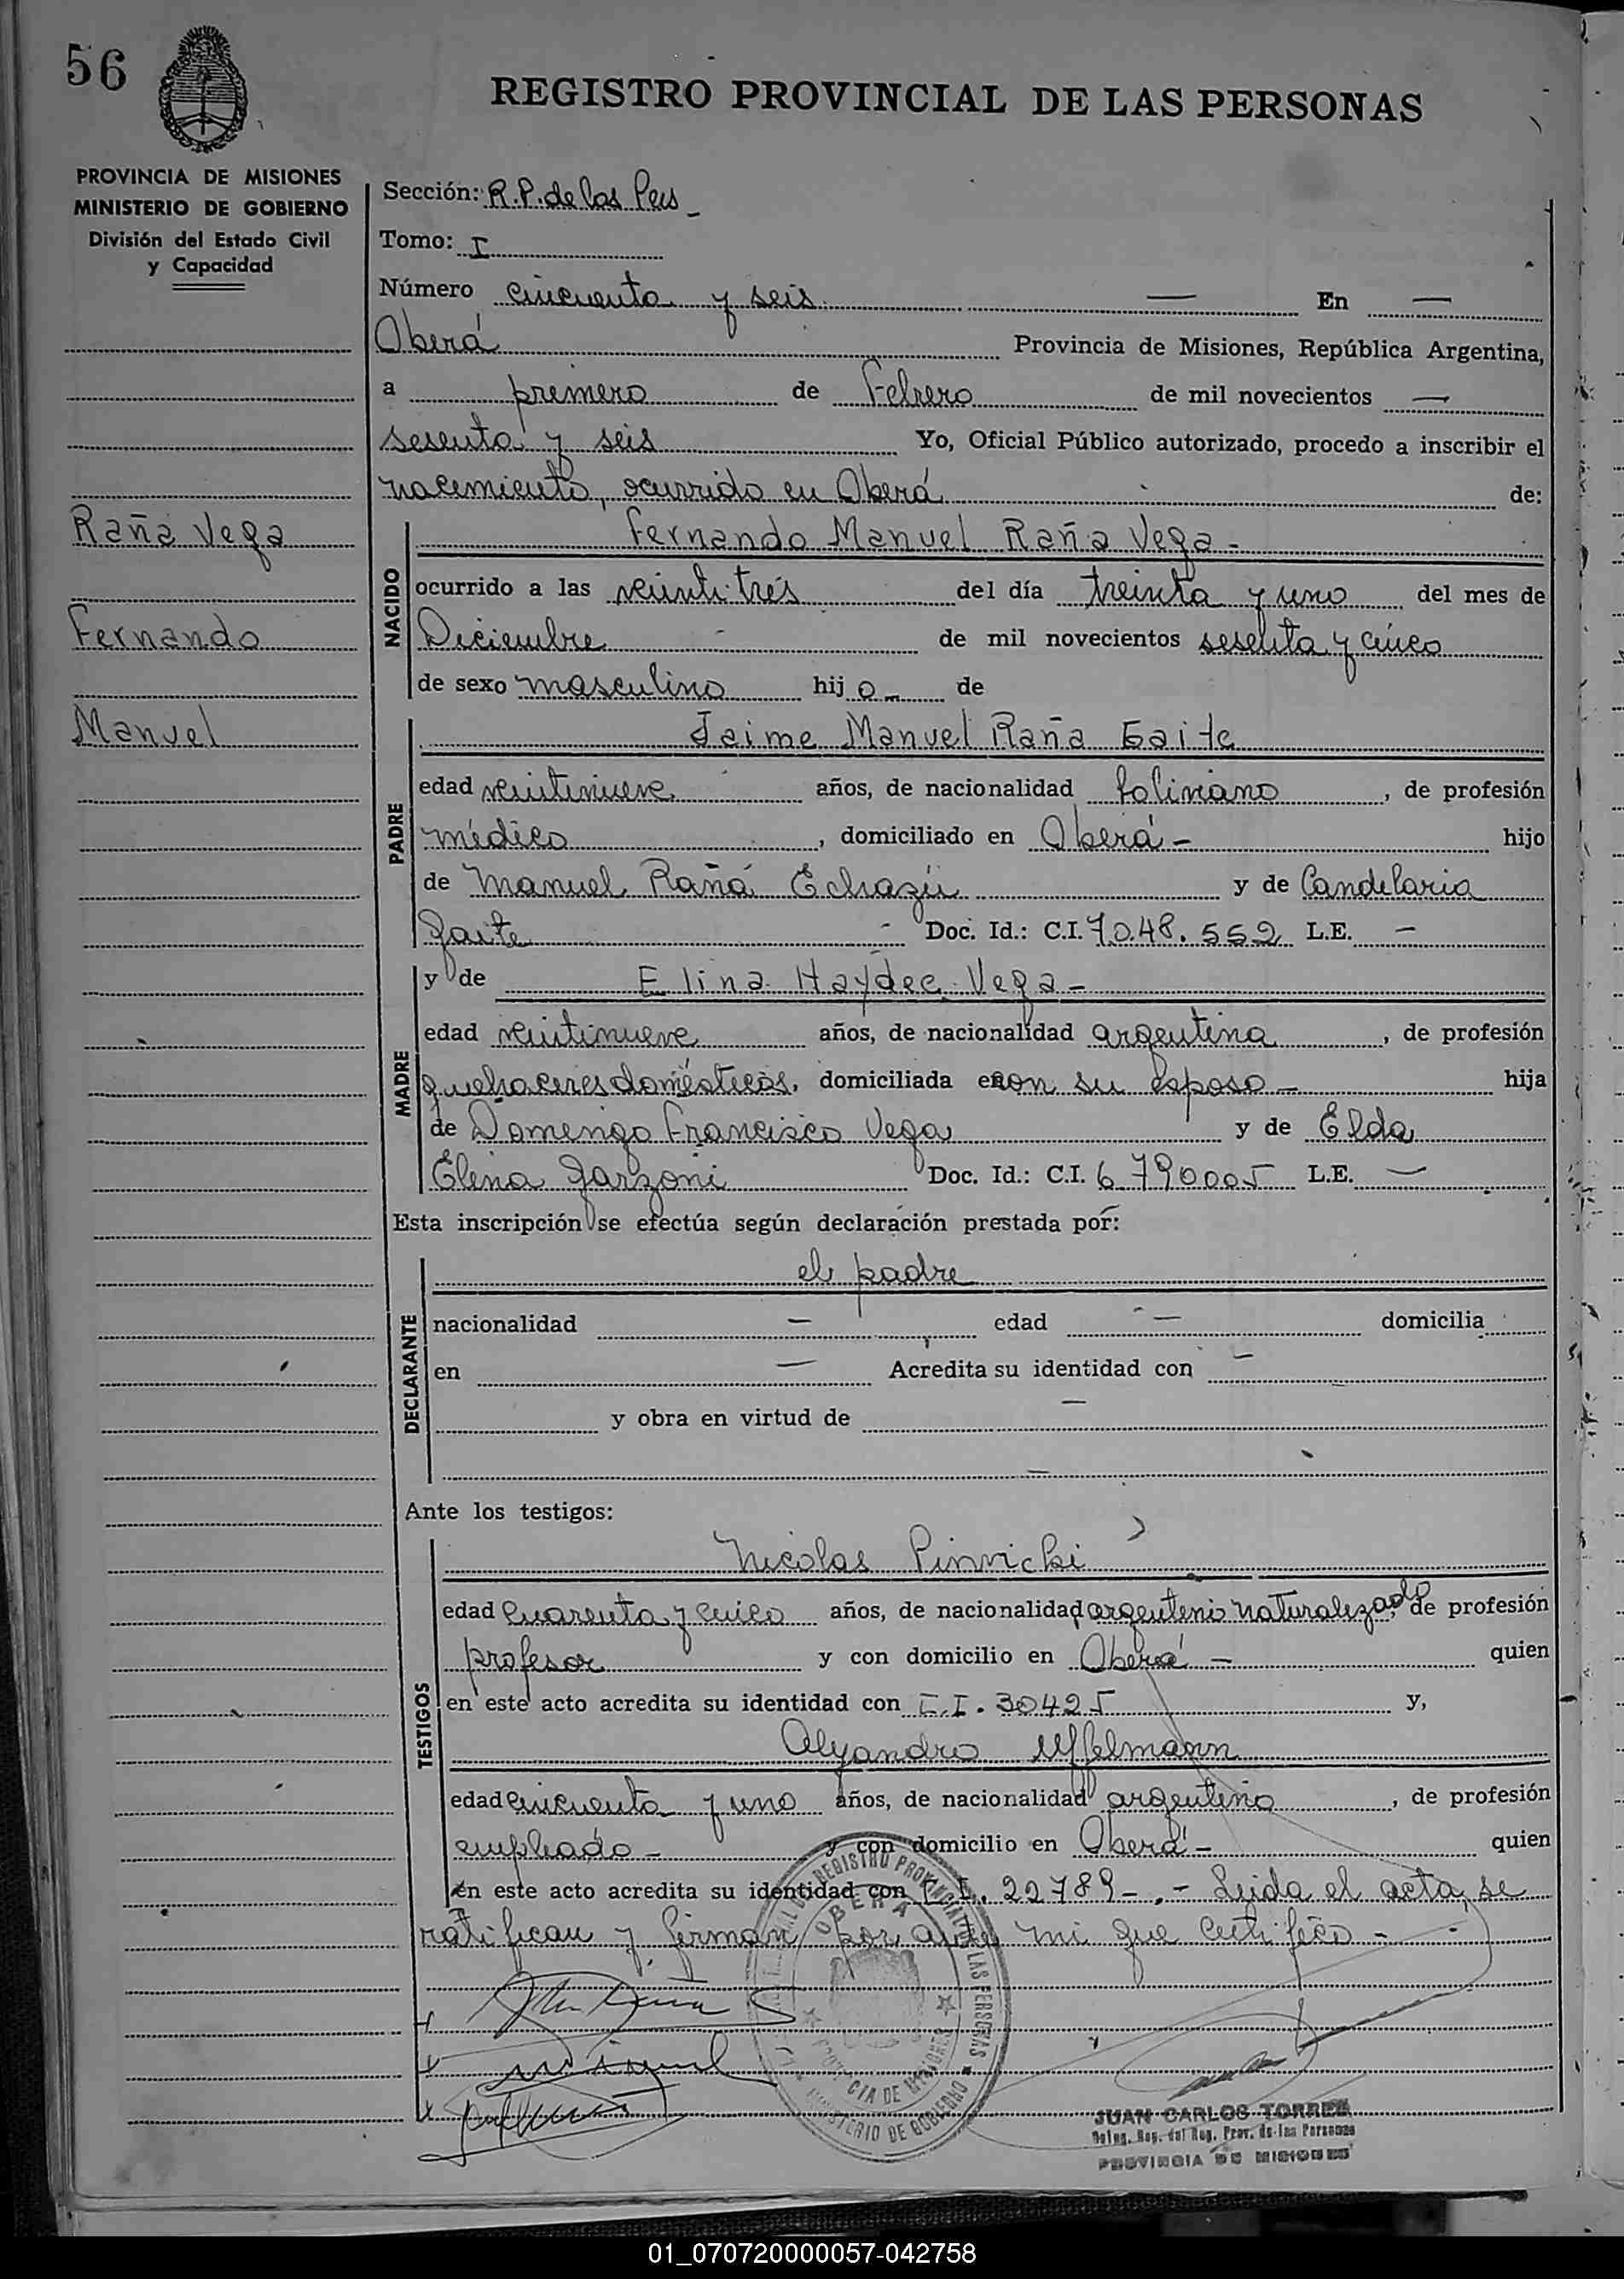 56
REGISTRO PROVINCIAL DE LAS PERSONAS
PROVINCIA DE MISIONES
MINISTERIO DE GOBIERNO
División del Estado Civil
y Capacidad
Raña Vega
Fernando
Manuel
Sección: R.P. de las Pers
Tomo: I
Número cincuenta y seis — En —
Oberá Provincia de Misiones, República Argentina,
a primero de Febrero de mil novecientos —
sesenta y seis Yo, Oficial Público autorizado, procedo a inscribir el
nacimiento, ocurrido en Oberá de:
NACIDO
Fernando Manuel Raña Vega -
ocurrido a las veintitrés del día treinta y uno del mes de
Diciembre de mil novecientos sesenta y cinco
de sexo masculino hijo de
PADRE
Jaime Manuel Raña Gaite
edad veintinueve años, de nacionalidad boliviano, de profesión
médico, domiciliado en Oberá - hijo
de Manuel Raña Echazú y de Candelaria
Gaite - Doc. Id.: C.I. 7.048.552 L.E. —
MADRE
y de Elina Haydee Vega -
edad veintinueve años, de nacionalidad argentina, de profesión
quehaceres domésticos, domiciliada con su esposo - hija
de Domingo Francisco Vega y de Elda
Elena Garzoni Doc. Id.: C.I. 6790005 L.E. —
Esta inscripción se efectúa según declaración prestada por:
DECLARANTE
el padre
nacionalidad — edad — domicilia
en — Acredita su identidad con —
y obra en virtud de —
—
Ante los testigos:
TESTIGOS
Nicolas Pinvicki
edad cuarenta y cinco años, de nacionalidad argentino naturalizado, de profesión
profesor y con domicilio en Oberá - quien
en este acto acredita su identidad con C.I. 30425 y,
Alejandro Uffelmann
edad cincuenta y uno años, de nacionalidad argentino, de profesión
empleado - y con domicilio en Oberá - quien
en este acto acredita su identidad con C.I. 22789-.- Leida el acta, se
ratifican y firman por ante mi que certifico -
OBERA
PROVINCIA DE MISIONES
MINISTERIO DE GOBIERNO
JUAN CARLOS TORRES
Deleg. Reg. del Reg. Prov. de las Personas
PROVINCIA DE MISIONES
01_070720000057-042758